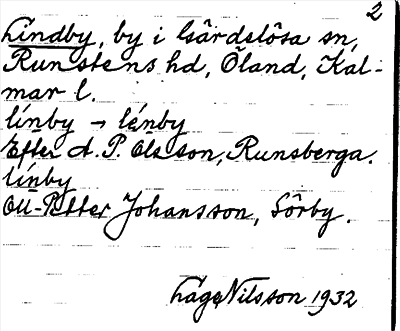 2
Lindby, by i Gärdslösa sn,
Runstens hd, Öland, Kal-
mar l.
línby → lénby
Efter A. P. Olsson, Runsberga.
línby
Johansson, Sörby.
Låge Nilsson 1932